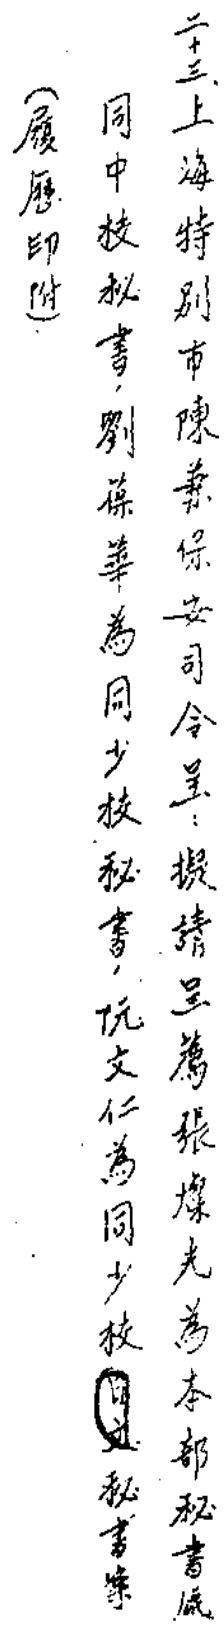 二十三、上海特別市陳兼保安司令呈：擬請呈薦張燦光為本部秘書處
同中校秘書，劉葆華為同少校秘書，阮文仁為同少校秘書案
（履歷印附）